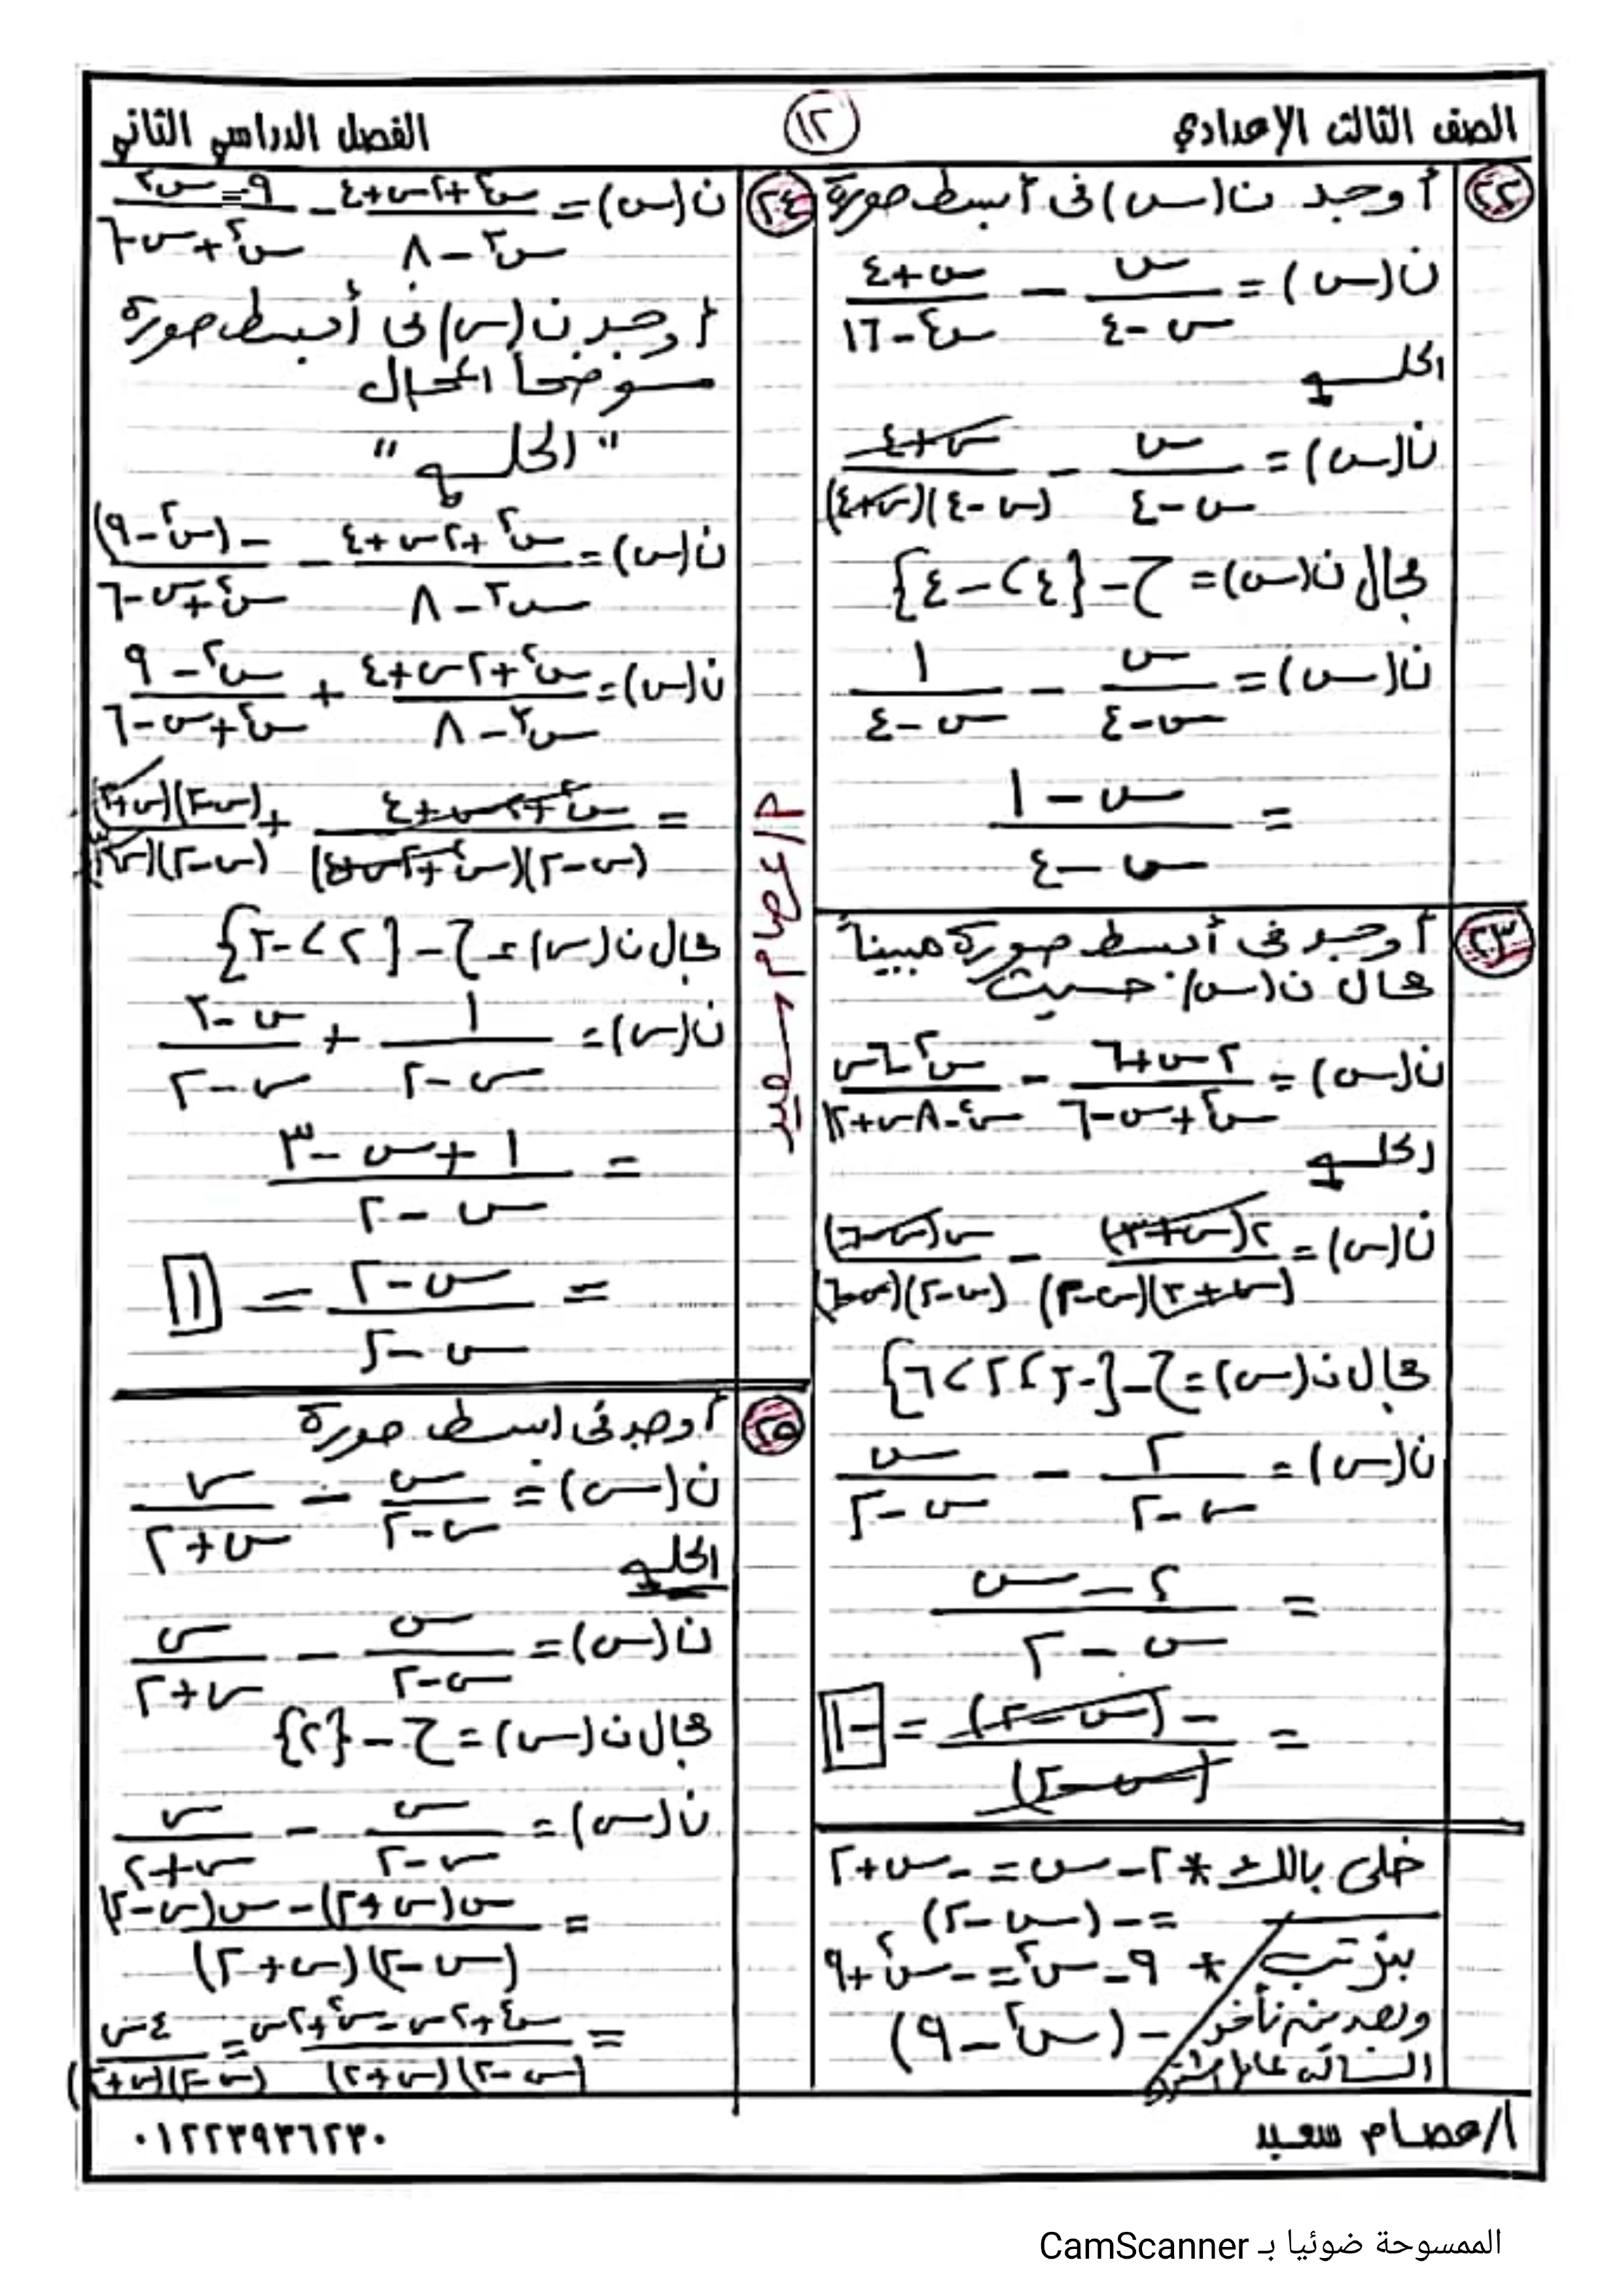 الصف الثالث الإعدادي
١٢
الفصل الدراسي الثاني
٢٢ أوجد ن(س) فى أبسط صورة
ن(س) = س/(س-٤) - (س+٤)/(س²-١٦)
الحلــ
ن(س) = س/(س-٤) - (س+٤)/((س-٤)(س+٤))
مجال ن(س) = ح - {٤، -٤}
ن(س) = س/(س-٤) - ١/(س-٤)
= (س-١)/(س-٤)
٢٣ أوجد فى أبسط صورة مبيناً
مجال ن(س) حيث
ن(س) = (٢س+٦)/(س²+س-٦) - (س²-٦س)/(س²-٨س+١٢)
الحلــ
ن(س) = ٢(س+٣)/((س+٣)(س-٢)) - س(س-٦)/((س-٢)(س-٦))
مجال ن(س) = ح - {-٣، ٢، ٦}
ن(س) = ٢/(س-٢) - س/(س-٢)
= (٢-س)/(س-٢)
= -(س-٢)/(س-٢) = -١
خلى بالك * ٢-س = -س+٢
= -(س-٢)
بنرتب * ٩-س² = -س²+٩
وبعدين نأخد -(س²-٩)
السالب عامل مشترك
م/عصام سعيد
٢٤ ن(س) = (س²+٢س+٤)/(س³-٨) - (٩-س²)/(س²+س-٦)
أوجد ن(س) فى أبسط صورة
موضحاً المجال
"الحلــ"
ن(س) = (س²+٢س+٤)/(س³-٨) - -(س²-٩)/(س²+س-٦)
ن(س) = (س²+٢س+٤)/(س³-٨) + (س²-٩)/(س²+س-٦)
= (س²+٢س+٤)/((س-٢)(س²+٢س+٤)) + (س-٣)(س+٣)/((س-٢)(س+٣))
مجال ن(س) = ح - {٢، -٣}
ن(س) = ١/(س-٢) + (س-٣)/(س-٢)
= (١+س-٣)/(س-٢)
= (س-٢)/(س-٢) = ١
٢٥ أوجد فى أبسط صورة
ن(س) = س/(س-٢) - س/(س+٢)
الحلــ
ن(س) = س/(س-٢) - س/(س+٢)
مجال ن(س) = ح - {٢}
ن(س) = س/(س-٢) - س/(س+٢)
= (س(س+٢) - س(س-٢))/((س-٢)(س+٢))
= (س²+٢س-س²+٢س)/((س-٢)(س+٢)) = ٤س/((س-٢)(س+٢))
أ/عصام سعيد
٠١٢٢٣٩٣٦٢٣٠
الممسوحة ضوئيا بـ CamScanner